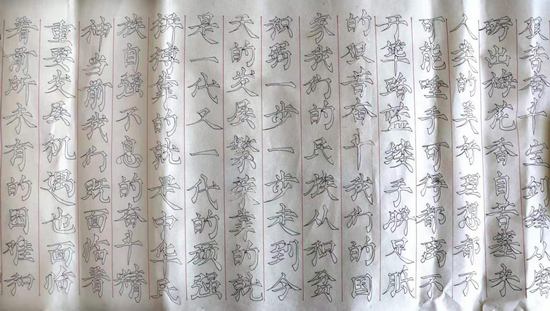 艰苦奋斗宝剑锋从磨
砺出梅花香自苦寒来
人类的美好理想都不
可能唾手可得都离不
开筚路蓝缕手胼足胝
的艰苦奋斗我们的国
家我们的民族从积贫
积弱一步一步走到今
天的发展繁荣靠的就
是一代又一代的顽强
拼搏靠的就是中华民
族自强不息的奋斗精
神当前我们既面临着
重要发展机遇也面临
着前所未有的困难和